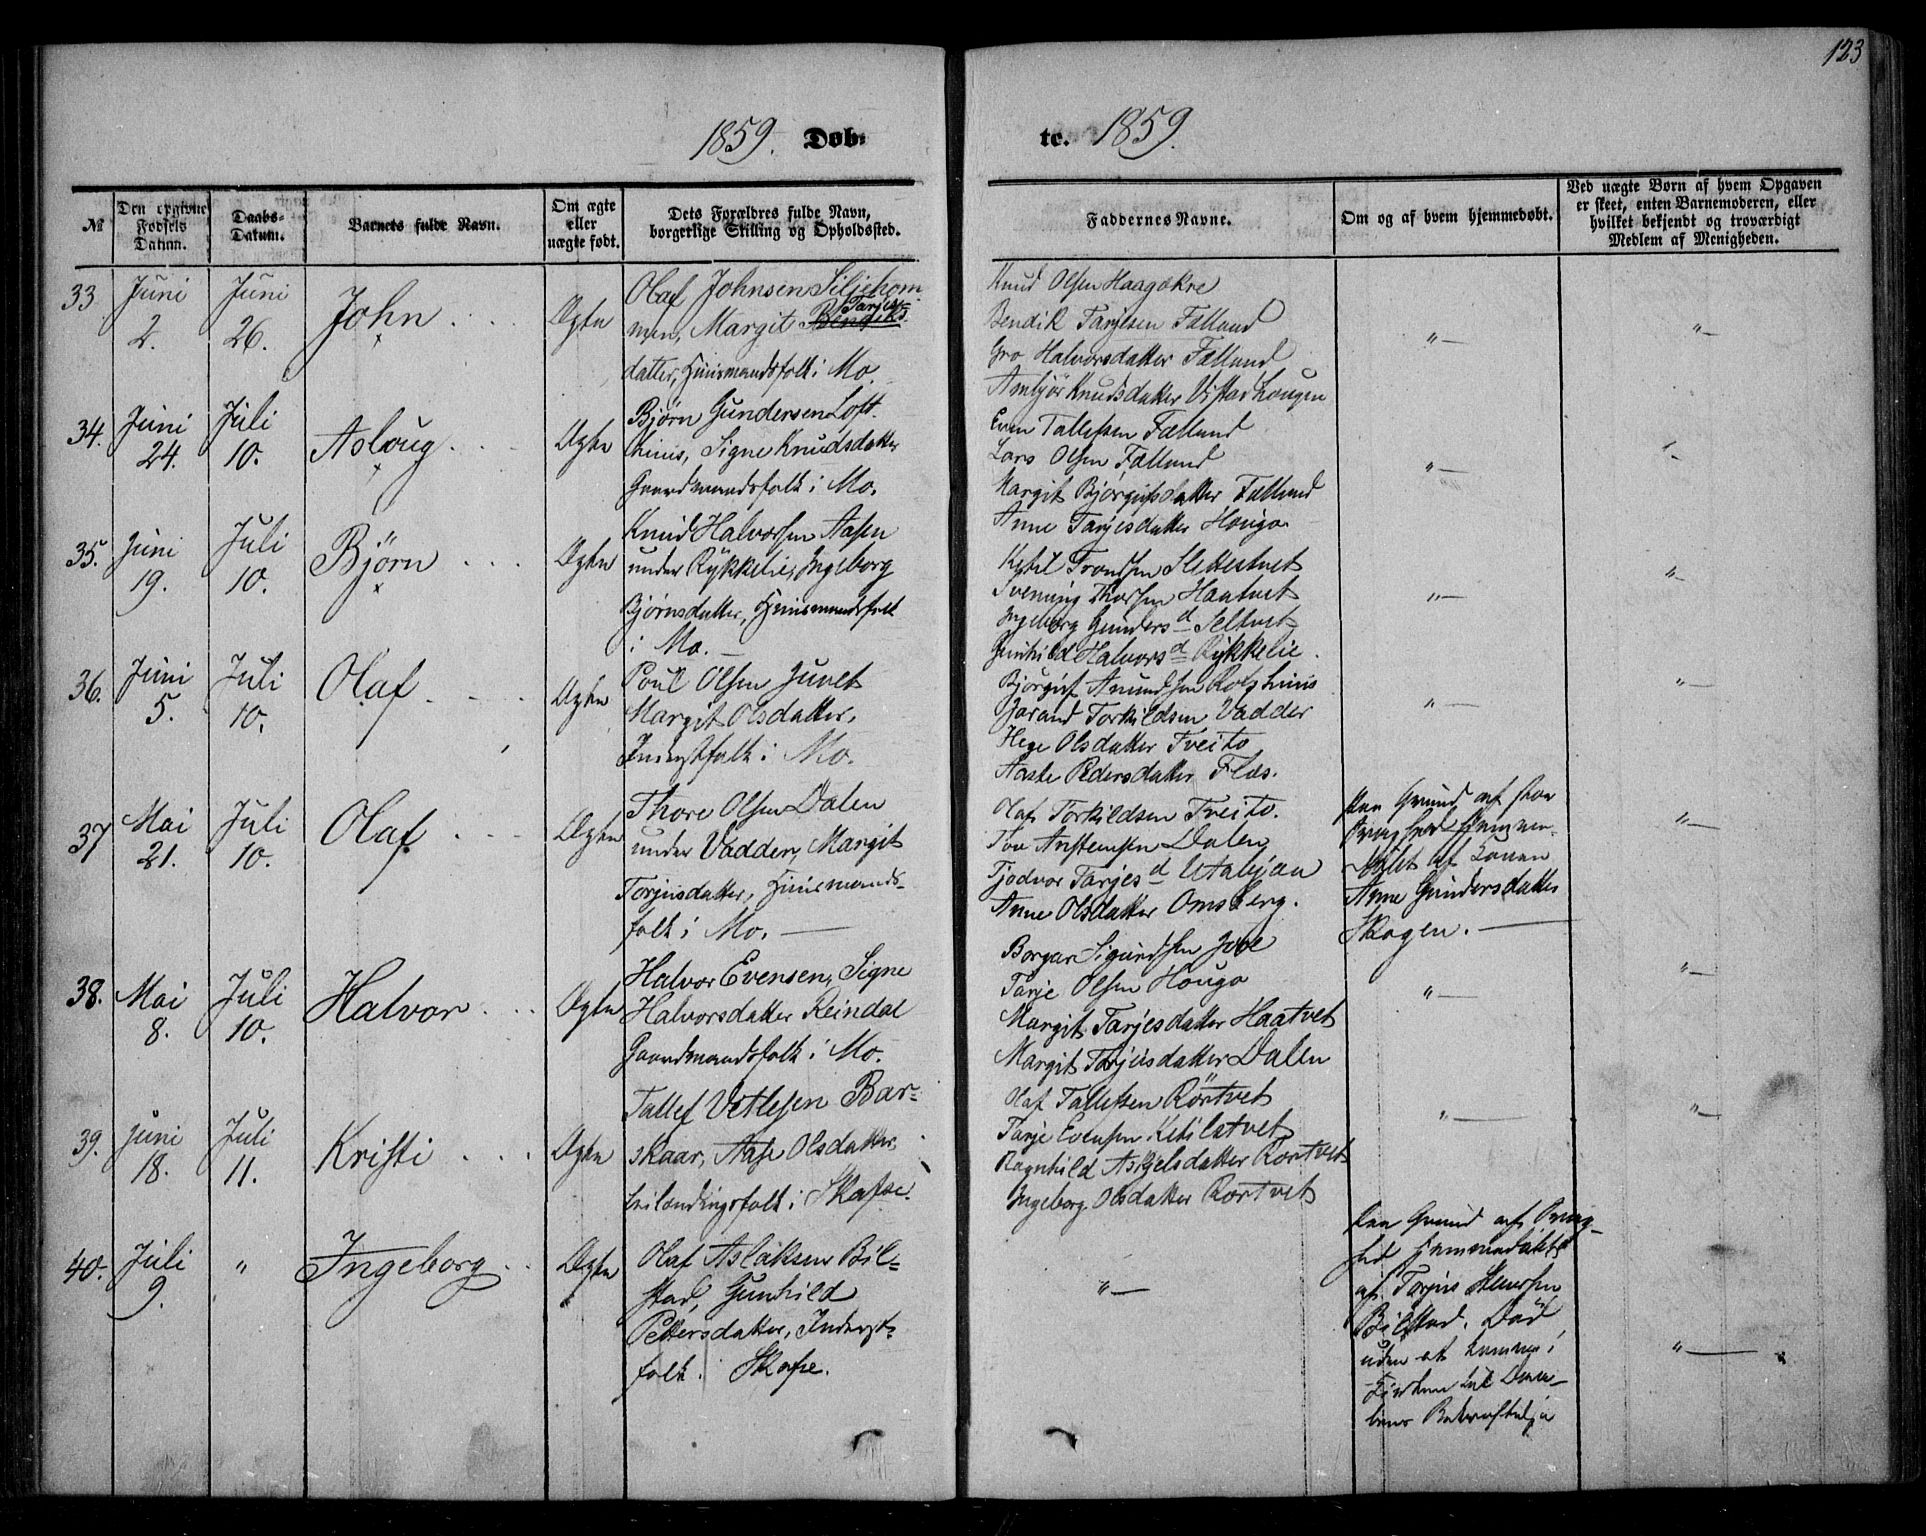 123
1859. Døb-
te. 1859.
№
Den opgivne Fødsels Datum.
Daabs-Datum.
Barnets fulde Navn.
Om ægte eller uægte født.
Dets Forældres fulde Navn, borgerlige Stilling og Opholdssted.
Faddernes Navne.
Om og af hvem hjemmedøbt.
Ved uægte Børn af hvem Opgaven er skeet, enten Barnemoderen, eller hvilket bekjendt og troværdigt Medlem af Menigheden.
33. Juni 2. Juni 26. John Ægte
Olaf Johnsen Siljehom
men, Margit Tarjes
datter, Huusmandsfolk i Mo.
Knud Olsen Haagakre
Bendik Tarjesen Fælland
Gro Halvorsdatter Fælland
Ambjør Knudsdatter Vistadhougen
"— "—
34. Juni 24. Juli 10. Aslaug Ægte
Bjørn Gundersen Loft-
huus, Signe Knudsdatter
Gaardmandsfolk i Mo.
Even Tallefsen Fælland
Lars Olsen Fælland
Margit Bjørgufsdatter Fælland
Anne Tarjesdatter Hougo
"— "—
35. Juni 19. Juli 10. Bjørn Ægte
Knud Halvorsen Aasen
under Rykkelie, Ingeborg
Bjørnsdatter, Huusmandsfolk
i Mo. —
Ketil Trondsen Slettestvet
Svenung Thorsen Haatvet
Ingeborg Gunders d Seltvet
Gunhild Halvors d Rykkelie.
"— "—
36. Juni 5. Juli 10. Olaf Ægte
Poul Olsen Juvet
Margit Olsdatter,
Inderstfolk i Mo.
Bjørguf Amundsen Rolshuus
Jorand Torkildsen Vadder
Hege Olsdatter Tveito
Aaste Pedersdatter Flas.
"— "—
37 Mai 21. Juli 10. Olaf Ægte
Thore Olsen Dalen
under Vadder, Margit
Torjusdatter, Huusmands-
folk i Mo. —
Olaf Torkildsen Tveito.
Tov Anstensen Dalen
Tjodvor Tarjes d Utabjaa
Anne Olsdatter Omsberg.
Paa Grund af stor
Svaghed hjemme-
døbt af Konen
Anne Gundersdatter
Skogen. —
"—
38. Mai 8. Juli 10. Halvor Ægte
Halvor Evensen, Signe
Halvorsdatter Reindal
Gaardmandsfolk i Mo.
Borgar Sigurdsen Jore
Tarje Olsen Hougo
Margit Tarjesdatter Haatvet
Margit Torjusdatter Dalen
"— "—
39. Juni 18. Juli 11. Kristi Ægte
Tallef Vetlesen Bar-
skaar, Aase Olsdatter,
Leilændingsfolk i Skafse.
Olaf Tallefsen Rörtvet
Tarje Evensen Ketilstvet
Ragnhild Asgjelsdatter Rörtvet
Ingeborg Olsdatter Rörtvet
"— "—
40. Juli 9. " Ingeborg Ægte
Olaf Aslaksen Bil-
stad, Gunhild
Pettersdatter, Inderst-
folk i Skafse.
"—
Paa Grund af Svag-
hed hjemmedøbt
af Torjus Steensen
Bilstad. Død
uden at komme i
Kirken til Daa-
bens Bekræftelse
"—